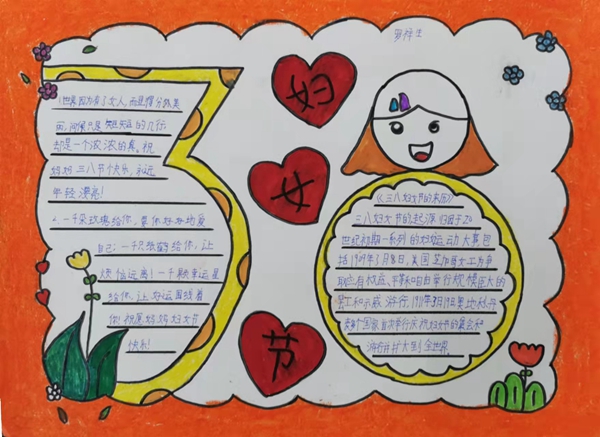 妇
女
节
1.世界因为有了女人,而显得分外美
丽,问候只是短短的几行
却是一个浓浓的真。祝
妈妈三八节快乐,永远
年轻漂亮!
2.一千朵玫瑰给你,要你好好地爱
自己;一千只纸鹤给你,让
烦恼远离!一千颗幸运星
给你,让好运围绕着
你!祝愿妈妈妇女节
快乐!
《三八妇女节的来历》
三八妇女节的起源归因于20
世纪初期一系列的妇女运动大事包
括1909年 月8日,美国芝加哥女工为争
取 权 举行规模巨大的
罢工和示威游行,1911年3月 8
国家首次举行庆祝妇女节的 会和
游行并扩大到全世界